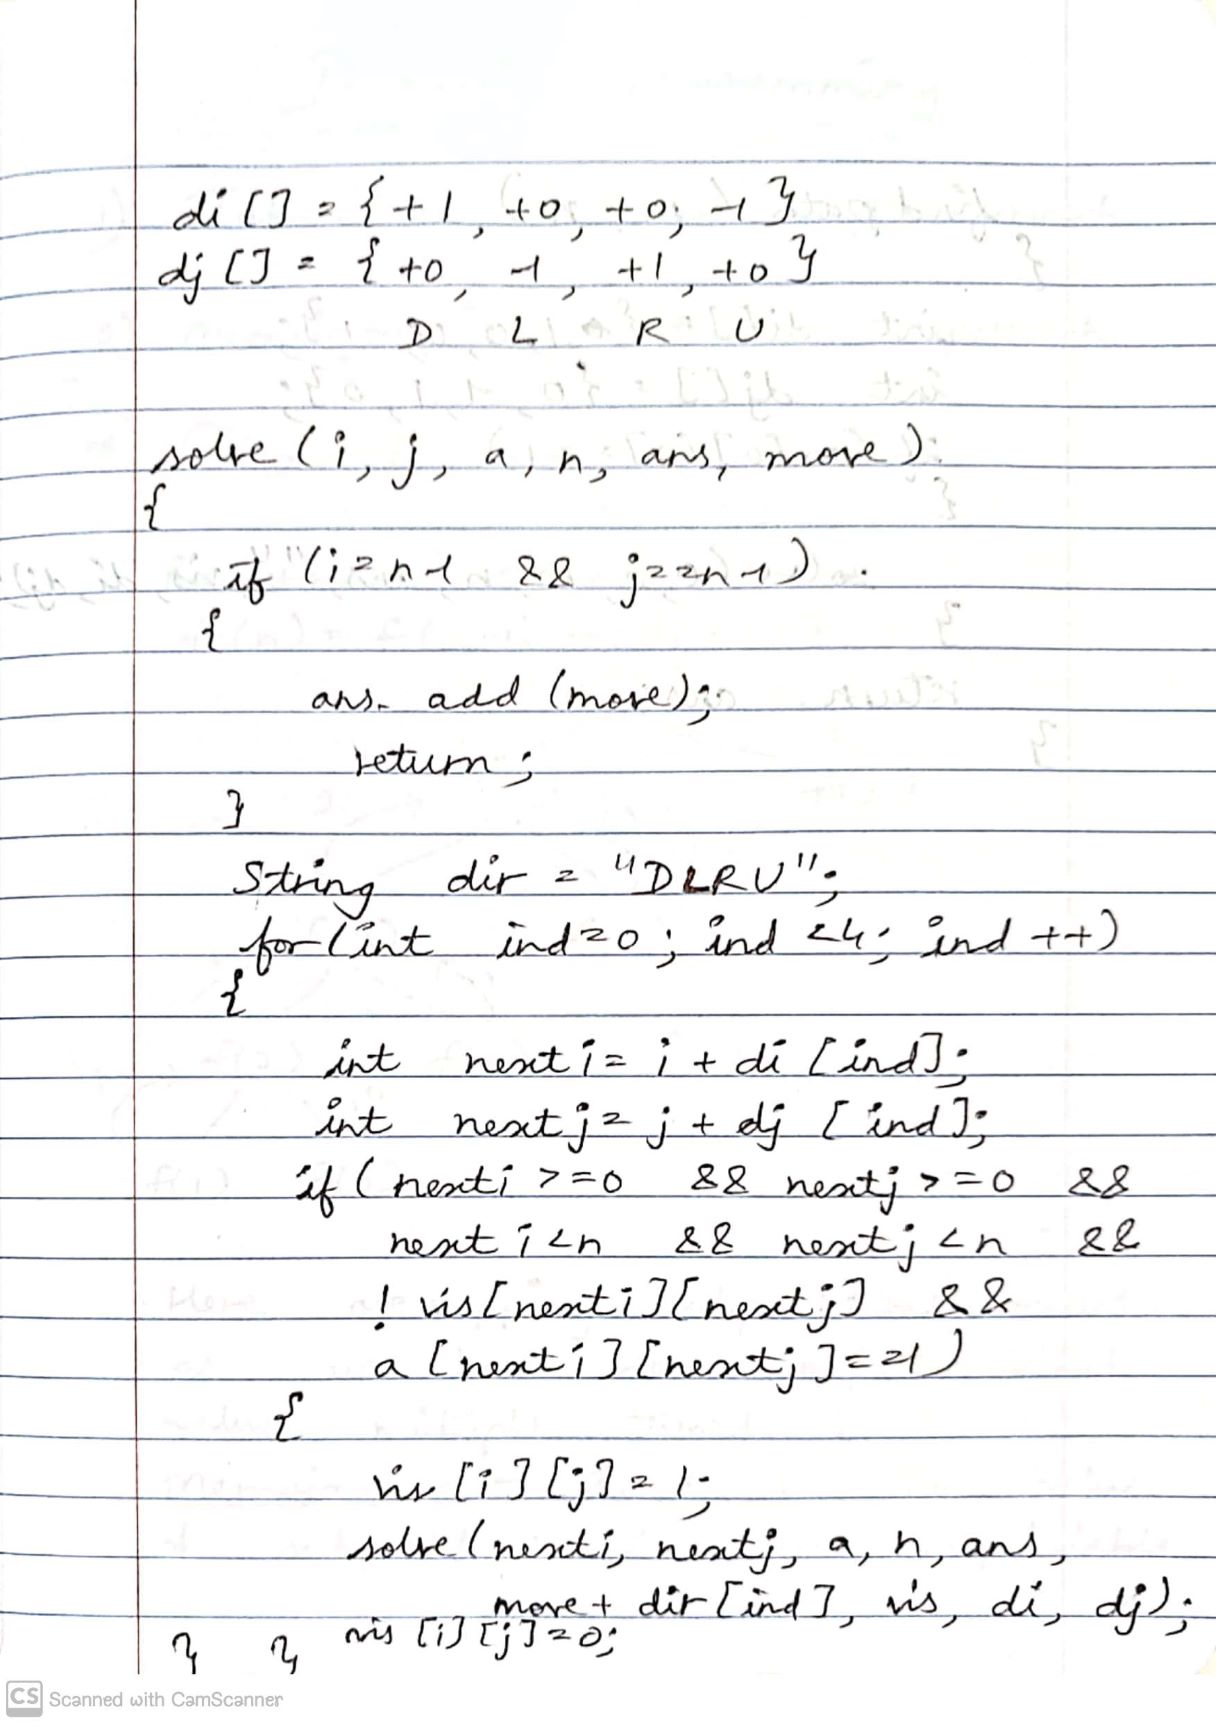 di[] = {+1, +0, +0, -1}
dj[] = {+0, -1, +1, +0}
D L R U
solve (i, j, a, n, ans, move)
{
if (i=n-1 && j==n-1)
{
ans. add (move);
return;
}
String dir = "DLRU";
for (int ind=0; ind <4; ind ++)
{
int nexti = i + di [ind];
int nextj = j + dj [ind];
if (nexti >=0 && nextj >=0 &&
nexti <n && nextj <n &&
! vis[nexti][nextj] &&
a [nexti][nextj]==1)
{
vis [i][j] = 1;
solve (nexti, nextj, a, n, ans,
move + dir [ind], vis, di, dj);
vis [i][j]=0;
} }
CS Scanned with CamScanner